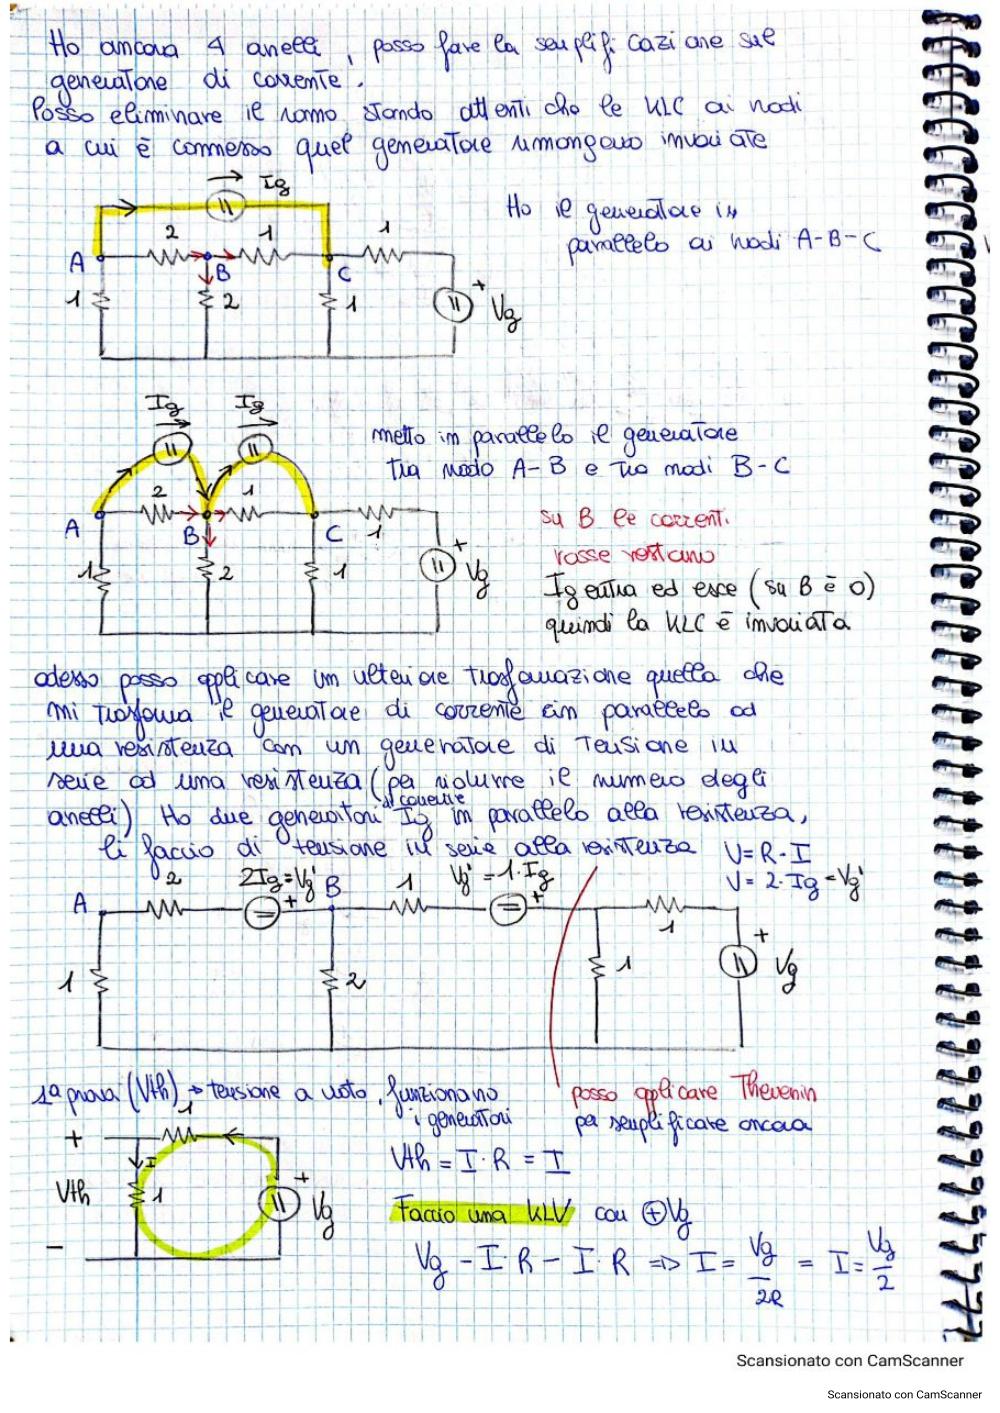 Ho ancora 4 anelli, posso fare la semplificazione sul
generatore di corrente.
Posso eliminare il ramo stando attenti che le KLC ai nodi
a cui è connesso quel generatore rimangano invariate
Ig
Ho il generatore in
parallelo ai nodi A-B-C
2 1 1
A B C
1 2 1 + Vg
Ig Ig
metto in parallelo il generatore
tra nodo A-B e tra nodi B-C
2 1
A B C 1
su B le correnti
rosse restano
1 2 1 + Vg
Ig entra ed esce (su B è 0)
quindi la KLC è invariata
adesso posso applicare un ulteriore trasformazione quella che
mi trasforma il generatore di corrente in parallelo ad
una resistenza con un generatore di tensione in
serie ad una resistenza (per ridurre il numero degli
anelli) Ho due generatori di corrente Ig in parallelo alla resistenza,
li faccio di tensione in serie alla resistenza V=R·I
V=2·Ig=Vg'
2 2Ig=Vg' B 1 Vg'=1·Ig
A + + 1
1 2 1 + Vg
1ª prova (Vth) → tensione a vuoto, funzionano
i generatori
posso applicare Thevenin
per semplificare ancora
1
+ I
Vth 1 + Vg
-
Vth = I·R = I
Faccio una KLV con ⊕Vg
Vg - I·R - I·R => I = Vg/2R = I = Vg/2
Scansionato con CamScanner
Scansionato con CamScanner